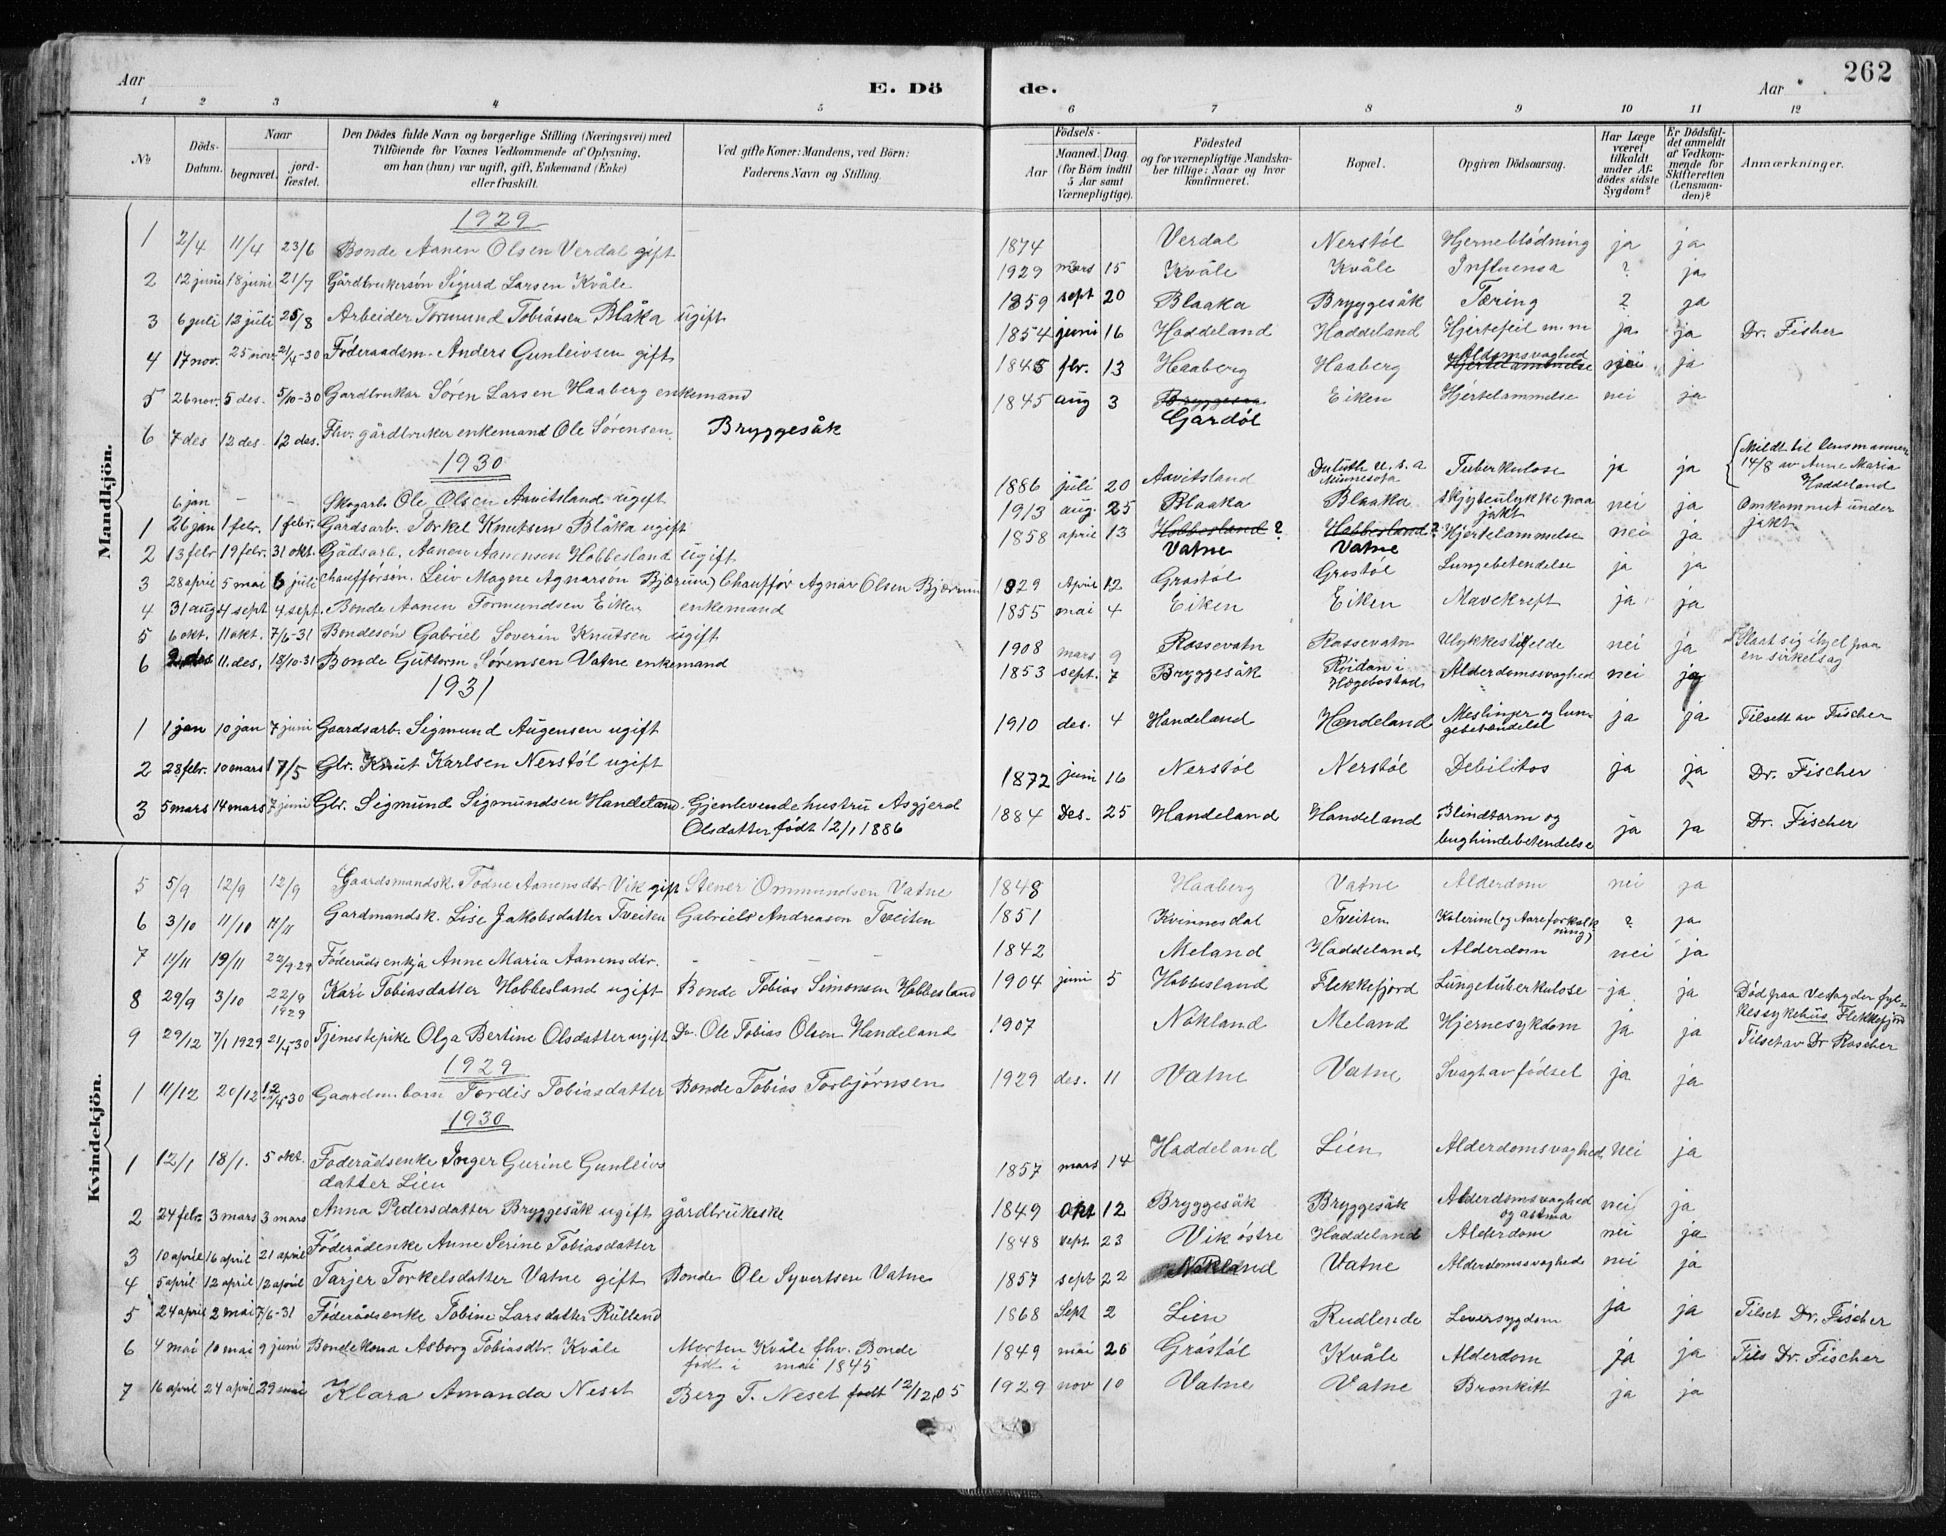 Aar
E. Dö
de.
Aar
262
1 2 3 4 5 6 7 8 9 10 11 12
№
Döds-Datum.
Naar
begravet.
jordfæstet.
Den Dödes fulde Navn og borgerlige Stilling (Næringsvei) med
Tilföiende for Voxnes Vedkommende af Oplysning,
om han (hun) var ugift, gift, Enkemand (Enke)
eller fraskilt.
Ved gifte Koner: Mandens, ved Börn:
Faderens Navn og Stilling.
Födsels-
Aar
Maaned. Dag.
(for Börn indtil
5 Aar samt
Værnepligtige).
Födested
og for værnepligtige Mandskaber tillige: Naar og hvor
konfirmeret.
Bopæl.
Opgiven Dödsaarsag.
Har Læge
været
tilkaldt
under Afdödes sidste
Sygdom?
Er Dödsfaldet anmeldt
af Vedkommende for
Skifteretten
(Lensmanden)?
Anmærkninger.
Mandkjön.
1929
1 2/4 11/4 23/6 Bonde Aanen Olsen Verdal gift 1874 Verdal Nerstøl Hjerneblødning ja ja
2 12 juni 18 juni 21/7 Gårdbrukersøn Sigurd Larsen Kvåle 1929 mars 15 Kvåle Kvåle Influensa ? ja
3 6 juli 12 juli 25/8 Arbeider Tormund Tobiassen Blåka ugift 1859 sept 20 Blaaka Bryggesåk Tæring ? ja
4 17 nov. 25 nov. 21/4-30 Føderaadsm. Anders Gunleivsen gift 1854 juni 16 Haddeland Haddeland Hjertefeil m.m ja ja Dr. Fisher
5 26 nov. 5 des. 5/10-30 Gardbruker Søren Larsen Haaberg enkemand 1845 fbr. 13 Haaberg Haaberg Aldomsvaghed Hjertelammelse nei ja
6 7 des 12 des. 12 des. Fhv. gårdbruker enkemand Ole Sørensen Bryggesåk 1845 aug 3 Bryggesaa Gardøl Eiken Hjertelammelse nei ja
1930
6 jan - - Skogarb. Ole Olsen Aavitsland ugift 1886 juli 20 Aavitsland Duluth U.S.a Minnesota Tuberkulose ja ja Mildt til lensmannen
14/8 av Anne Maria
Haddeland
1 26 jan 1 febr. 1 febr. Gårdsarb. Torkel Knutsen Blåka ugift 1913 aug. 25 Blaaka Blaaka skjyteulykke paa jakt nei ja Omkommet under
jakt
2 13 febr 19 febr. 31 okt. Gådsarb. Aanen Aanensen Hobbesland ugift 1858 april 13 Hobbesland? Vatne Hobbesland? Vatne Hjertelammelse nei ja
3 28 april 5 mai 6 juli chaufførsøn. Leiv Magne Agnarsøn Bjærum) Chauffør Agnar Olsen Bjærum 1929 April 12 Grostøl Grostøl Lungebetendelse ja ja
4 31 aug 4 sept 4 sept. Bonde Aanen Tormundsen Eiken enkemand 1855 mai 4 Eiken Eiken Mavekreft ja ja
5 6 okt. 11 okt. 7/6-31 Bondesøn Gabriel Soverin Knutsen ugift 1908 mars 9 Rossevatn Rossevatn Ulykkestilfelde nei ja Slaat sig ihjel paa
en sirkelsag
6 2 des 11. des. 18/10-31 Bonde Guttorm Sørensen Vatne enkemand 1853 sept. 7 Bryggesåk Røidan i Hægebostad Alderdomssvaghed nei ja
1931
1 1 jan 10 jan 7 juni Gaardsarb. Sigmund Augensen ugift 1910 des. 4 Handeland Handeland Meslinger og lungebetendelse ja ja Tilsett av Fischer
2 28 febr. 10 mars 17/5 Gbr. Knut Karlsen Nerstøl ugift 1872 juni 16 Nerstøl Nerstøl Debilitos ja ja Dr. Fischer
3 5 mars 14 mars 7 juni Gbr. Sigmund Sigmundsen Handeland. Gjenlevende hustru Asgjerd
Olsdatter født 12/1 1886 1884 Des. 25 Handeland Handeland Blindtarm og
bughindebetendelse ja ja Dr. Fischer
Kvindekjön.
5 5/9 12/9 12/9 Gaardsmandsk. Todne Aanensdtr Vik gift Stener Ommundsen Vatne 1848 Haaberg Vatne Alderdom nei ja
6 3/10 11/10 11/11 Gardmandsk. Lise Jakobsdatter Tveiten Gabriels Andreason Tveiten 1851 Kvinnesdal Tveiten og Aareforkalkning) ? ja
7 11/11 19/11 22/9 29 Føderådsenkja Anne Maria Aanensdtr. - - - - 1842 Meland Haddeland Alderdom nei ja
8 29/9 3/10 22/9 1929 Kari Tobiasdatter Hobbesland ugift Bonde Tobias Simonsen Hobbesland 1904 juni 5 Hobbesland Flekkefjord Lungetuberkulose ja ja Død paa Vestagder fylkessykehus Flekkefjord
9 29/12 7/1 1929 21/4-30 Tjenestepike Olga Bertine Olsdatter ugift Do Ole Tobias Olsen Handeland 1907 Nokland Meland Hjernesykdom ja ja Tilset av Dr Roscher
1929
1 11/12 20/12 Gaardm. barn Tordis Tobiasdatter Bonde Tobias Torbjørnsen 1929 des. 11 Vatne Vatne Svagt av fødsel ja ja
1930
1 12/1 18/1. 5 okt. Føderådsenke Inger Gurine Gunleivs
datter Lien 1857 mars 14 Haddeland Lien Alderdomsvaghed Nei ja
2 24 febr. 3 mars 3 mars Anna Pedersdatter Bryggesåk ugift gårdbrukeske 1849 Okt 12 Bryggesåk Bryggesåk Alderdomsvaghed
og astma nei ja
3 10 april 16 april 21 april Føderådenke Anne Serine Tobiasdatter 1848 sept 23 Vik østre Haddeland Alderdom nei ja
4 5 april 12 april 12 april Tarjer Torkelsdatter Vatne gift Bonde Ole Syvertsen Vatne 1857 sept 22 Nokland Vatne Alderdomssvaghed nei ja
5 24 april 2 mai 7/6-31 Føderådsenke Tobine Larsdatter Rulland 1868 Sept 2 Lien Rudlende Leversygdom ja ja Tilset Dr. Fischer
6 4 mai 10 mai 9 juni Bondekona Asborg Tobiasdtr. Kvåle Morten Kvåle fhv. Bonde
født i mai 1845 1849 mai 20 Gråstøl Kvåle Alderdom ja ja Tils Dr. Fischer
7 16 april 24 april 29 mai Klara Amanda Neset Berg T. Neset født 12/12 05 1929 nov 10 Vatne Vatne Bronkitt ja ja